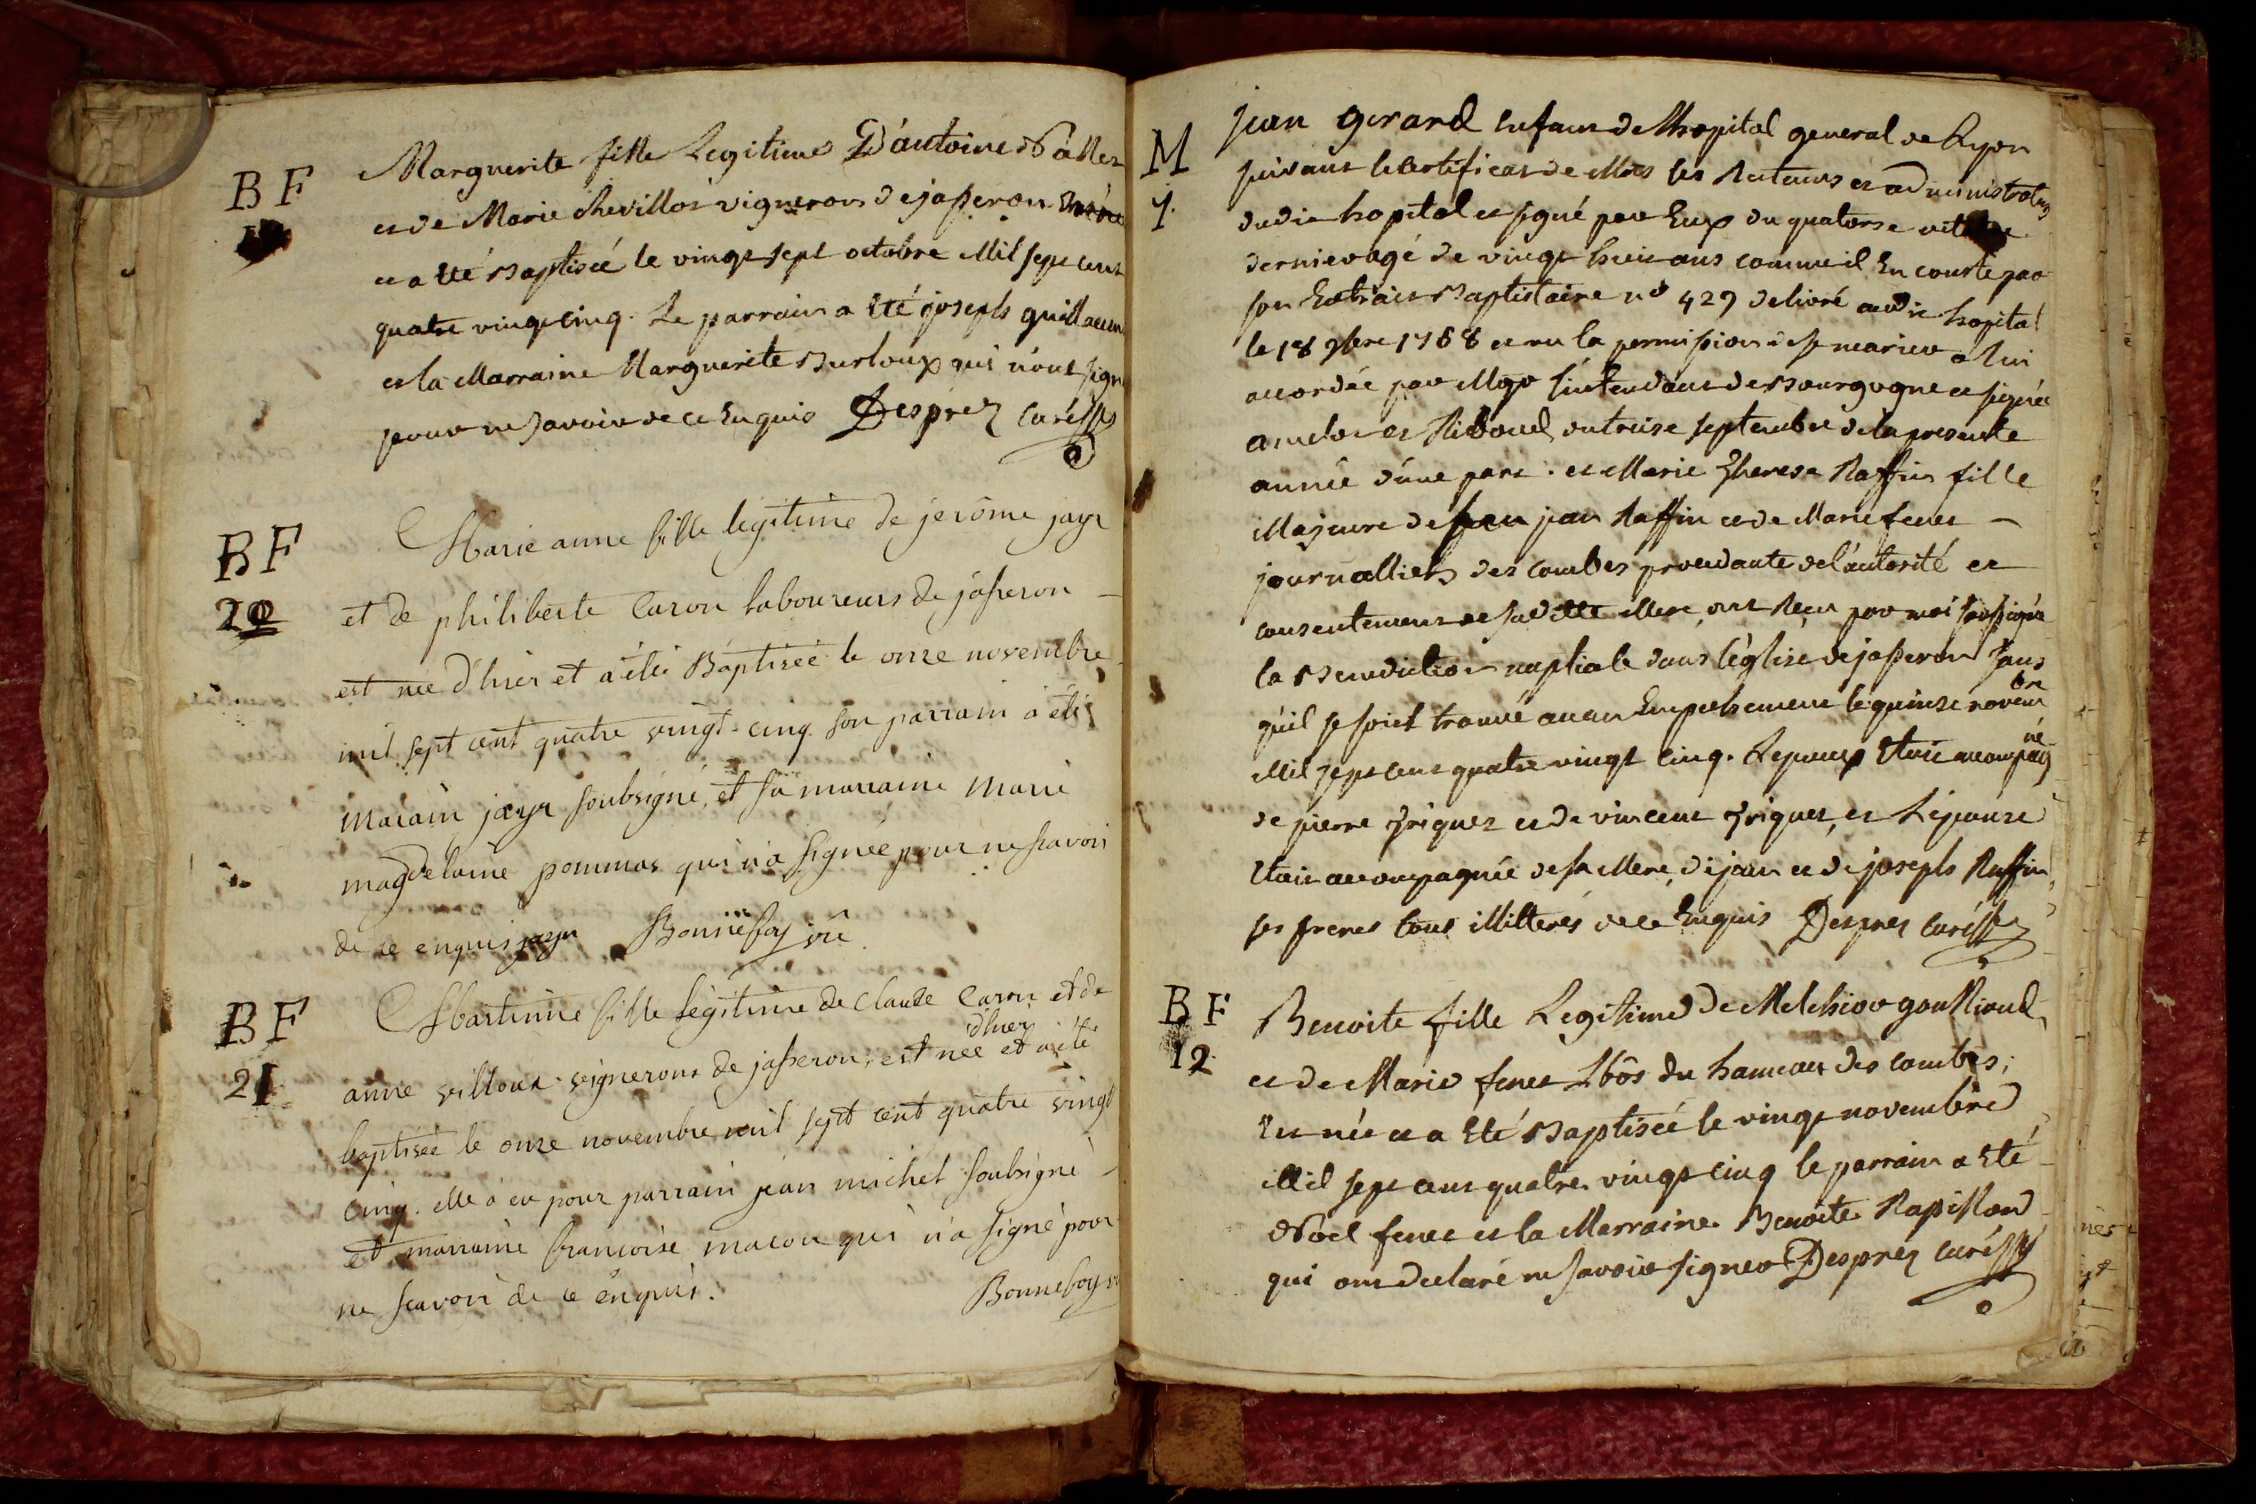 B F
Marguerite fille Legitime D'antoine
et de Marie chevillos vignerons de jasseron
et a Eté Baptisée le vingt sept octobre Mil sept cent
quatre vingt cinq. Le parrain a Eté joseph guillaum
et la Marraine Marguerite Burloux qui n'ont signé
pour ne savoir de ce Enquis Desprez Curé
B F
20
Marie anne fille legitime de jerôme jayr
et de philiberte Caron laboureurs de jasseron
est née d'hier et a été Baptisée le onze novembre
mil sept cent quatre vingt-cinq son parrain a été
Marain jayr soubsigné, et sa marraine Marie
magdelaine pommas qui n'a signée pour ne scavoir
de ce enquis jayr Bonnefoy vic
B F
21
Martinne fille legitime de Claude Caron et de
anne villoux vignerons de jasseron, est née d'hier et a été
baptisée le onze novembre mil sept cent quatre vingt
cinq. elle a eu pour parrain jean michel soubsigné
et marraine francoise macon qui n'a signé pour
ne scavoir de ce enquis. Bonnefoy
M
jean gerard Enfant de l'hopital general de Lyon
suivant le certificat de Mrs les Recteurs et administrateurs
dudit hopital et signé par Eux du quatorze
dernier agé de vingt huit ans comme il En conste par
son Extrait Baptistaire no 429 delivré audit hopital
le 18 9bre 1768 et vu la permission de se marier a lui
accordée par Mgr l'intendant de Bourgogne et signée
amelot et Riboud du treize septembre de la presente
année d'une part. et Marie Therese Raffin fille
Majeure de feu jean Raffin et de Marie fenet
journalliers des combes procedante de l'autorité et
consentement de saditte Mere, ont Reçu par moi soussigné
la Benediction nuptiale dans l'église de jasseron sans
qu'il se soit trouvé aucun Empechement le quinze novembre
Mil sept cent quatre vingt cinq. L'epoux Etoit accompagné
de pierre friquet et de vincent friquet, et L'epouse
Etoit accompagnée de sa Mere, de jean et de joseph Raffin
ses freres tous illitterés de ce Enquis Desprez Curé
B F
12
Benoite fille Legitime de Melchior goullioud
et de Marie fenet Lbôs du hameau des combes,
Est née et a Eté Baptisée le vingt novembre
Mil sept cent quatre vingt cinq le parrain a Eté
Noel fenet et la Marraine Benoite Rapillon
qui ont declaré ne savoir signer Desprez curé